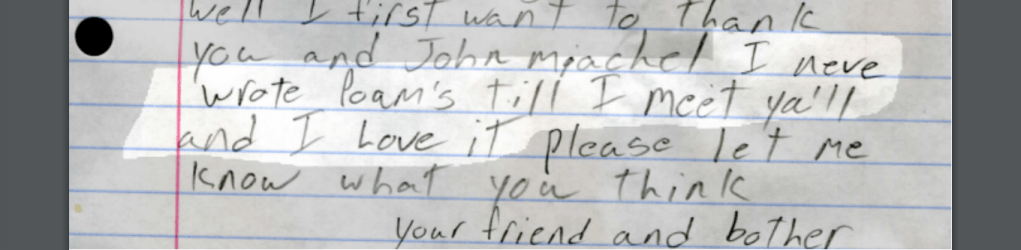 Well I first want to thank
you and John miachel I neve
wrote Poam's till I meet ya'll
and I Love it please let me
know what you think
your friend and bother